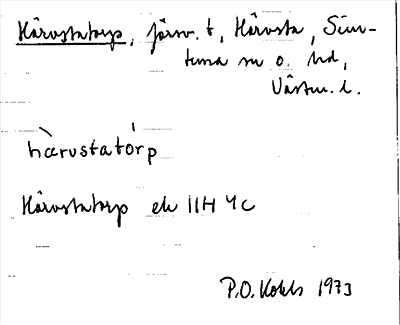 Härvstatorp, försv. t, Härvsta, Sim-
tuna sn o. hd,
Västm. l.
hàrvstatórp
Härvstatorp ek 11H 4c
P.O. 1973